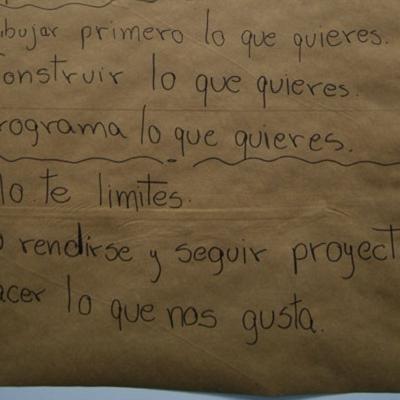 ibujar primero lo que quieres.
onstruir lo que quieres.
rograma lo que quieres.
lo te limites.
o rendirse y seguir proyect
acer lo que nos gusta.